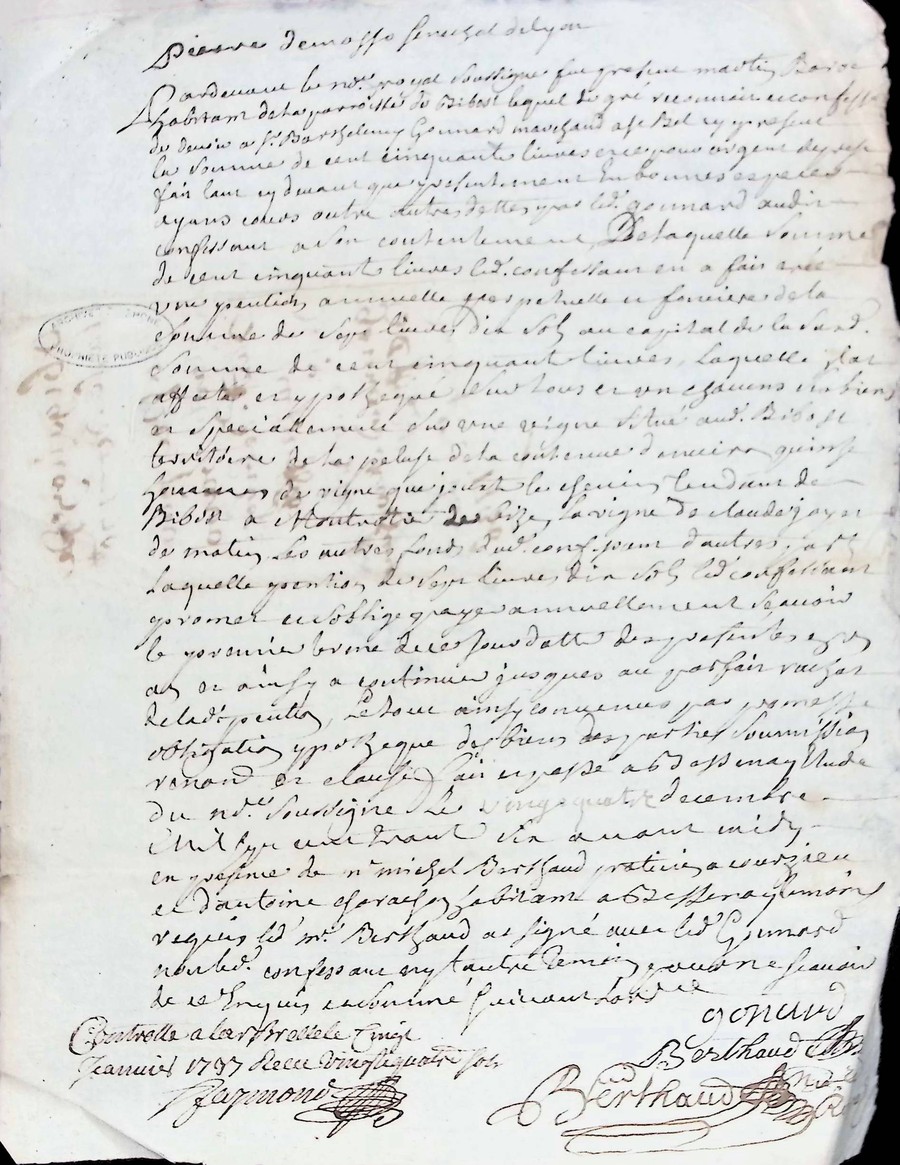 Pierre demasso senechal de lyon
Pardevant le nre. royal soussigné fut present martin Baron
habitant de la parroisse de Bibost lequel de gré reconnoit et confesse
de devoir a Sr. Barthelemy Gonnard marchand a st Bel cy present
la somme de cent cinquante livres et ce pour argent de prest
fait tant cydevant que presentement en bonnes especes
ayant cours outre autres dettes par led. gonnard audit
confessant a son contentement De laquelle somme
de cent cinquante livres led. confessant en a fait
une pention annuelle perpetuelle et fonciere de la
somme de sept livres dix sols au capital de la susd.
somme de cent cinquante livres laquelle
affecte et ypotheque sur tous et un chacuns ses biens
et specialement sur une vigne situé aud. Bibost
territoire de la pelusse de la contenue d'environ quinse
hommes de vigne que joint le chemin tendant de
Bibost a Montrotier de bize, la vigne de claude jayer
de matin, les autres fonds dud. confessant d'autres parts
laquelle pention de sept livres dix sols led confessant
promet et soblige payer annuellement scavoir
le premier terme de ce jourdatte des presentes en un
an et ainsy a continuer jusques au parfait rachat
de lad. pention, le tout ainsy convenus par promesse
obligation ypotheque des biens des parties soumission
renond et clauses fait et passé a Bessenay Etude
du nre. soussigné le vingt quatre decembre
Mil sept cent trante six avant midy
en presence de mr michel Berthaud praticien a courzieu
et d'antoine habitant a Bessenay temoins
requis led mr. Berthaud a signé avec led Gonnard
non led. confessant ny l'autre temoin pour ne scavoir
de ce Enquis et sommé suivant lord ce
gonard
Controllé a larbrelle le Cinq
Janvier 1737 Reçu vingt quatre sols
Berthaud
Raymond
Berthaud
ARCHIVES
PROPRIÉTÉ PUBLIQUE